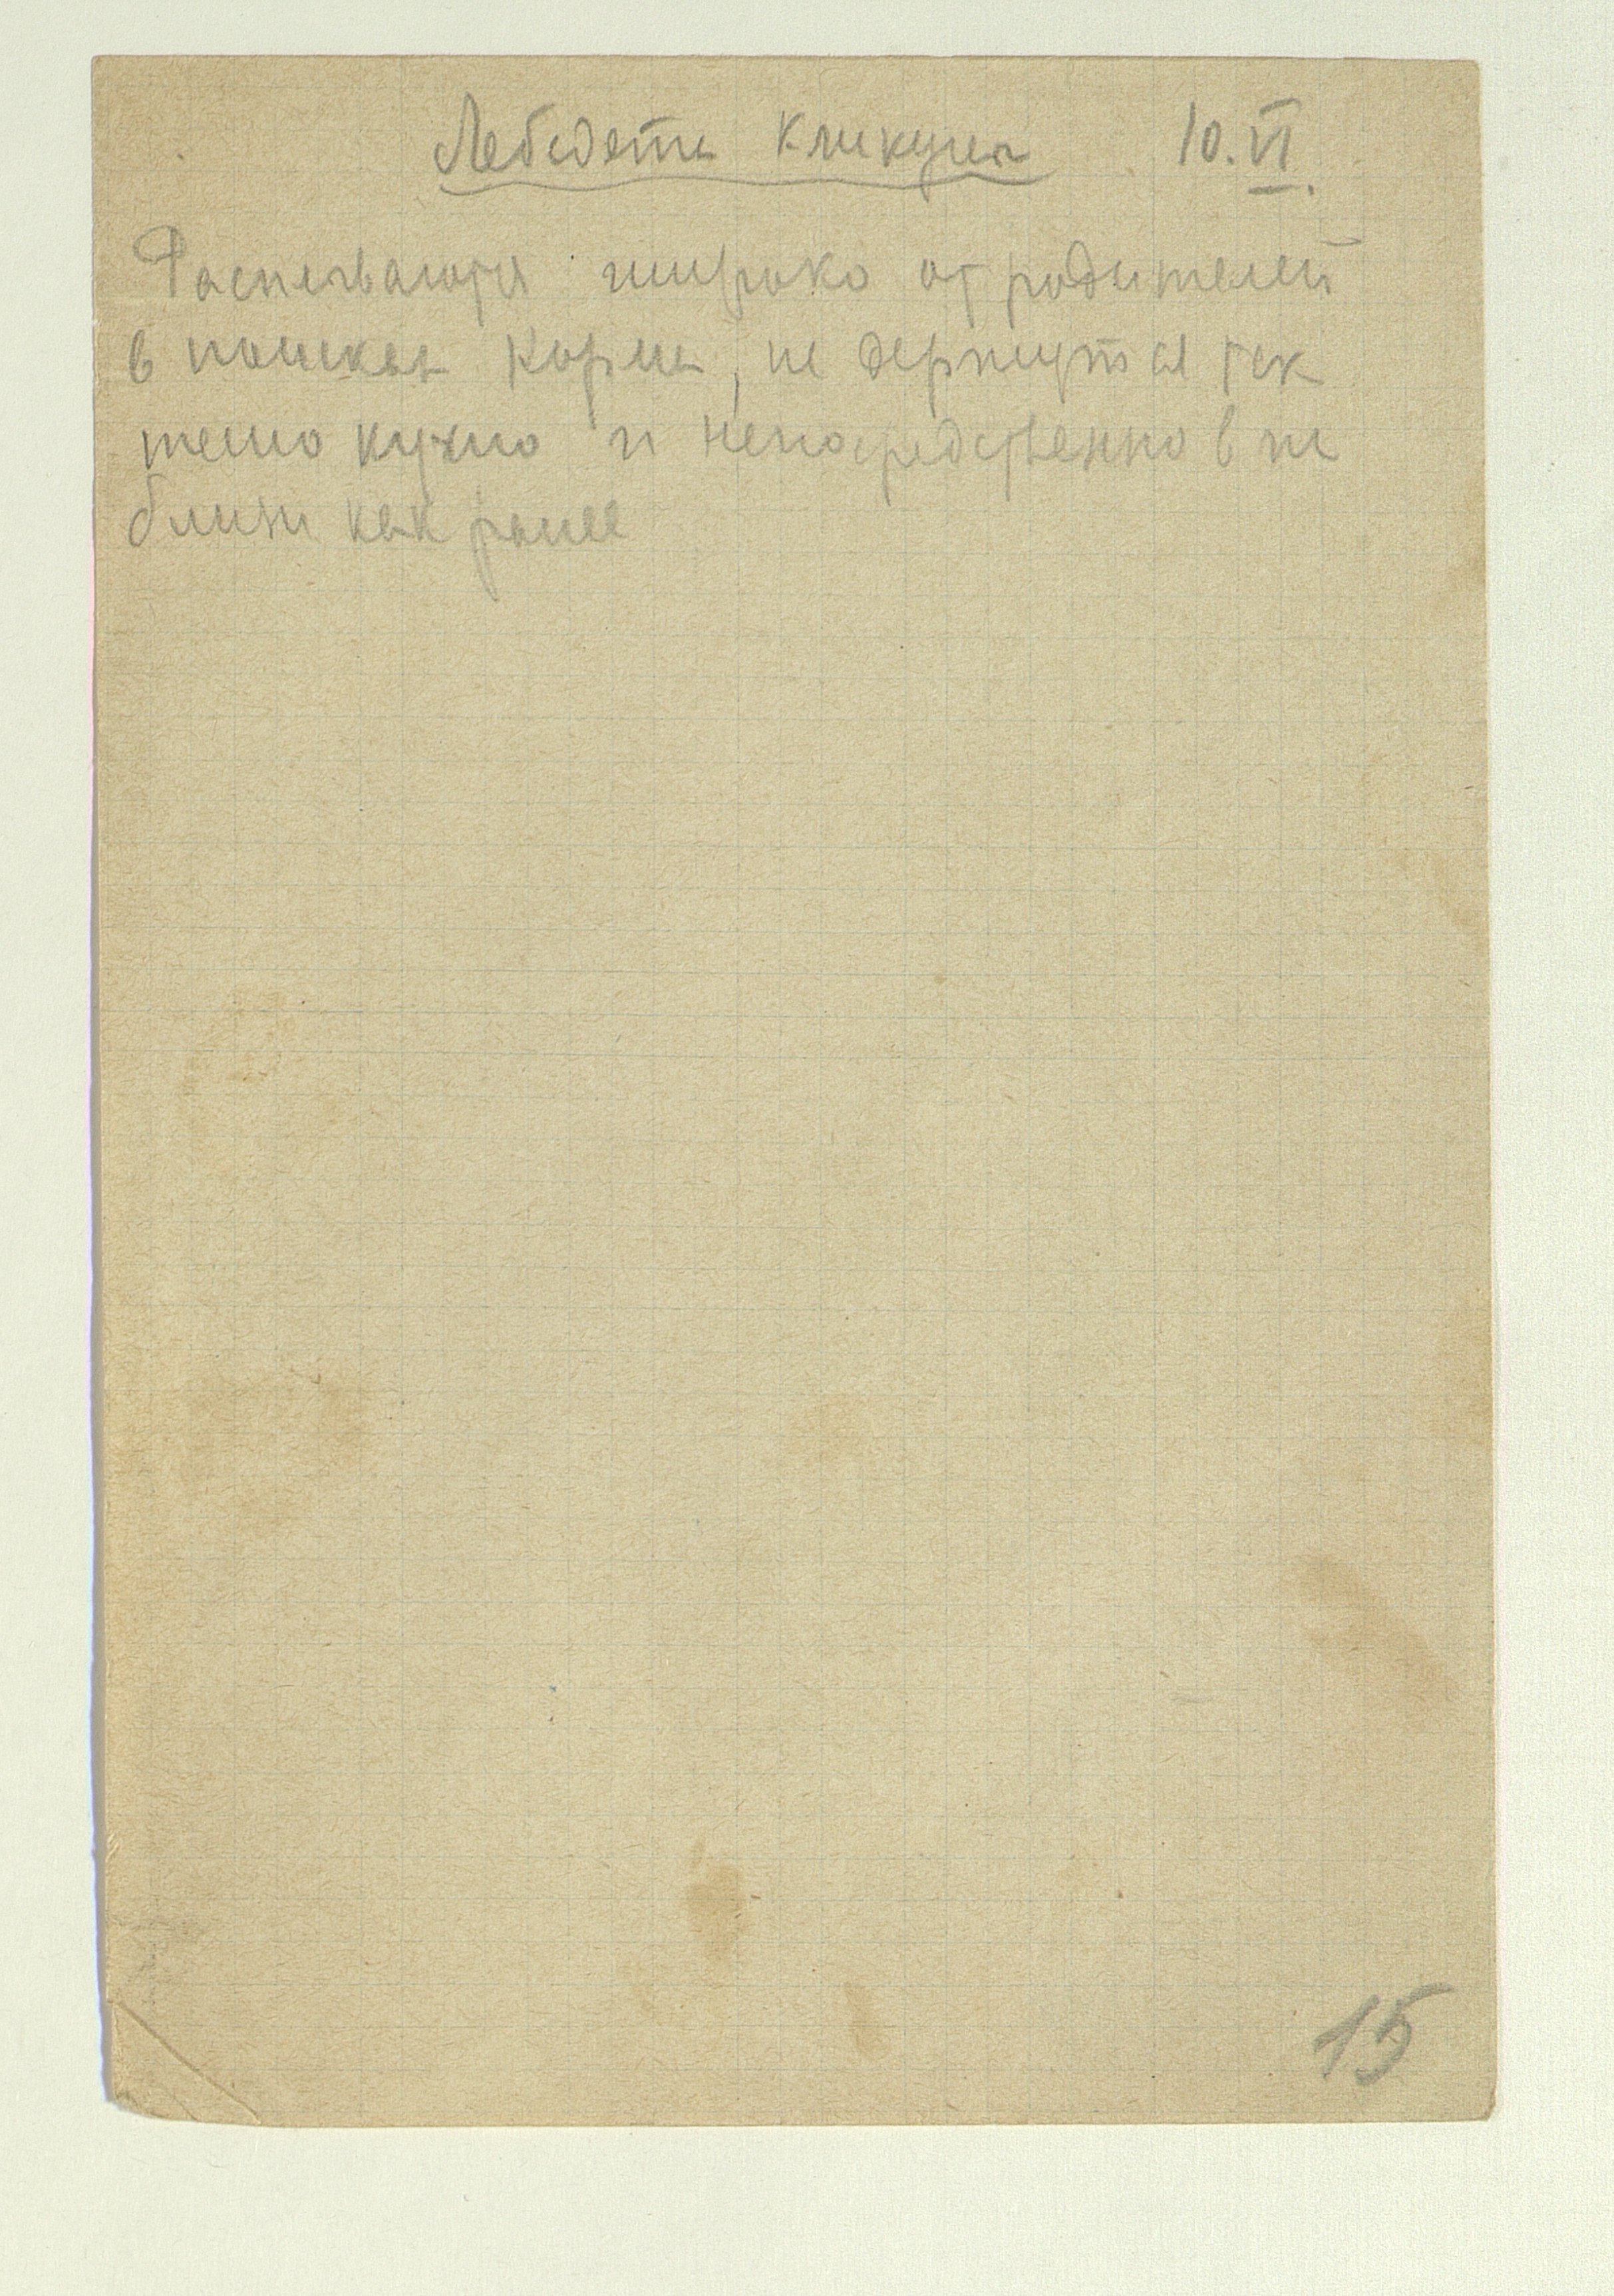 Лебедята кликуна 10.VI.
Расплываются широко от родителей
в поисках корма, не держутся так
тесно кучно и непосредственно в
близи как ранее
15